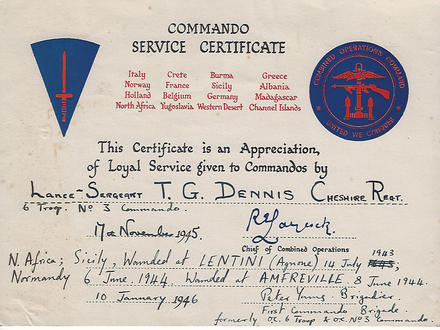 COMMANDO
SERVICE CERTIFICATE
COMBINED OPERATIONS COMMAND
UNITED WE CONQUER
Italy Crete Burma Greece
Norway France Sicily Albania
Holland Belgium Germany Madagascar
North Africa Yugoslavia Western Desert Channel Islands
This Certificate is an Appreciation,
of Loyal Service given to Commandos by
Lance-Sergeant T. G. Dennis Cheshire Regt.
6 Troop. No 3 Commando.
17th November 1945.
Chief of Combined Operations
1943
N. Africa; Sicily, Wounded at LENTINI (Agnone) 14 July
Normandy 6 June 1944. Wounded at AMFREVILLE 8 June 1944.
10 January 1946 Peter Young Brigadier.
First Commando Brigade.
formerly O.C. 6 Troop & O.C. No 3 Commando.